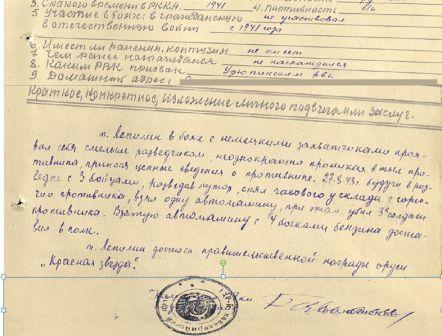 3. С какого времени в РККА 1941 4. партийность б/п
5. Участие в боях: в гражданскую не участвовал
в отечественной войны с 1941 года
6. Имеет ли ранения, контузии не имеет
7. Чем ранее награждался не награждался
8. Каким РВК призван Урюпинским рвк
9. Домашний адрес:
Краткое, конкретное, изложение личного подвига или заслуг.
т. Лепилин в боях с немецкими захватчиками проя-
вил себя смелым разведчиком, неоднократно проникая в тыл про-
тивника, принося ценные сведения о противнике. 27.8.43 г. будучи в раз-
ведке с 3 бойцами, разведав хутор, снял часового у склада с горю-
чим противника, взял одну автомашину, при этом убил 3х солдат
противника. Взятую автомашину с 4 бочками бензина доста-
вил в полк.
т. Лепилин достоин правительственной награды орден
"Красная звезда".